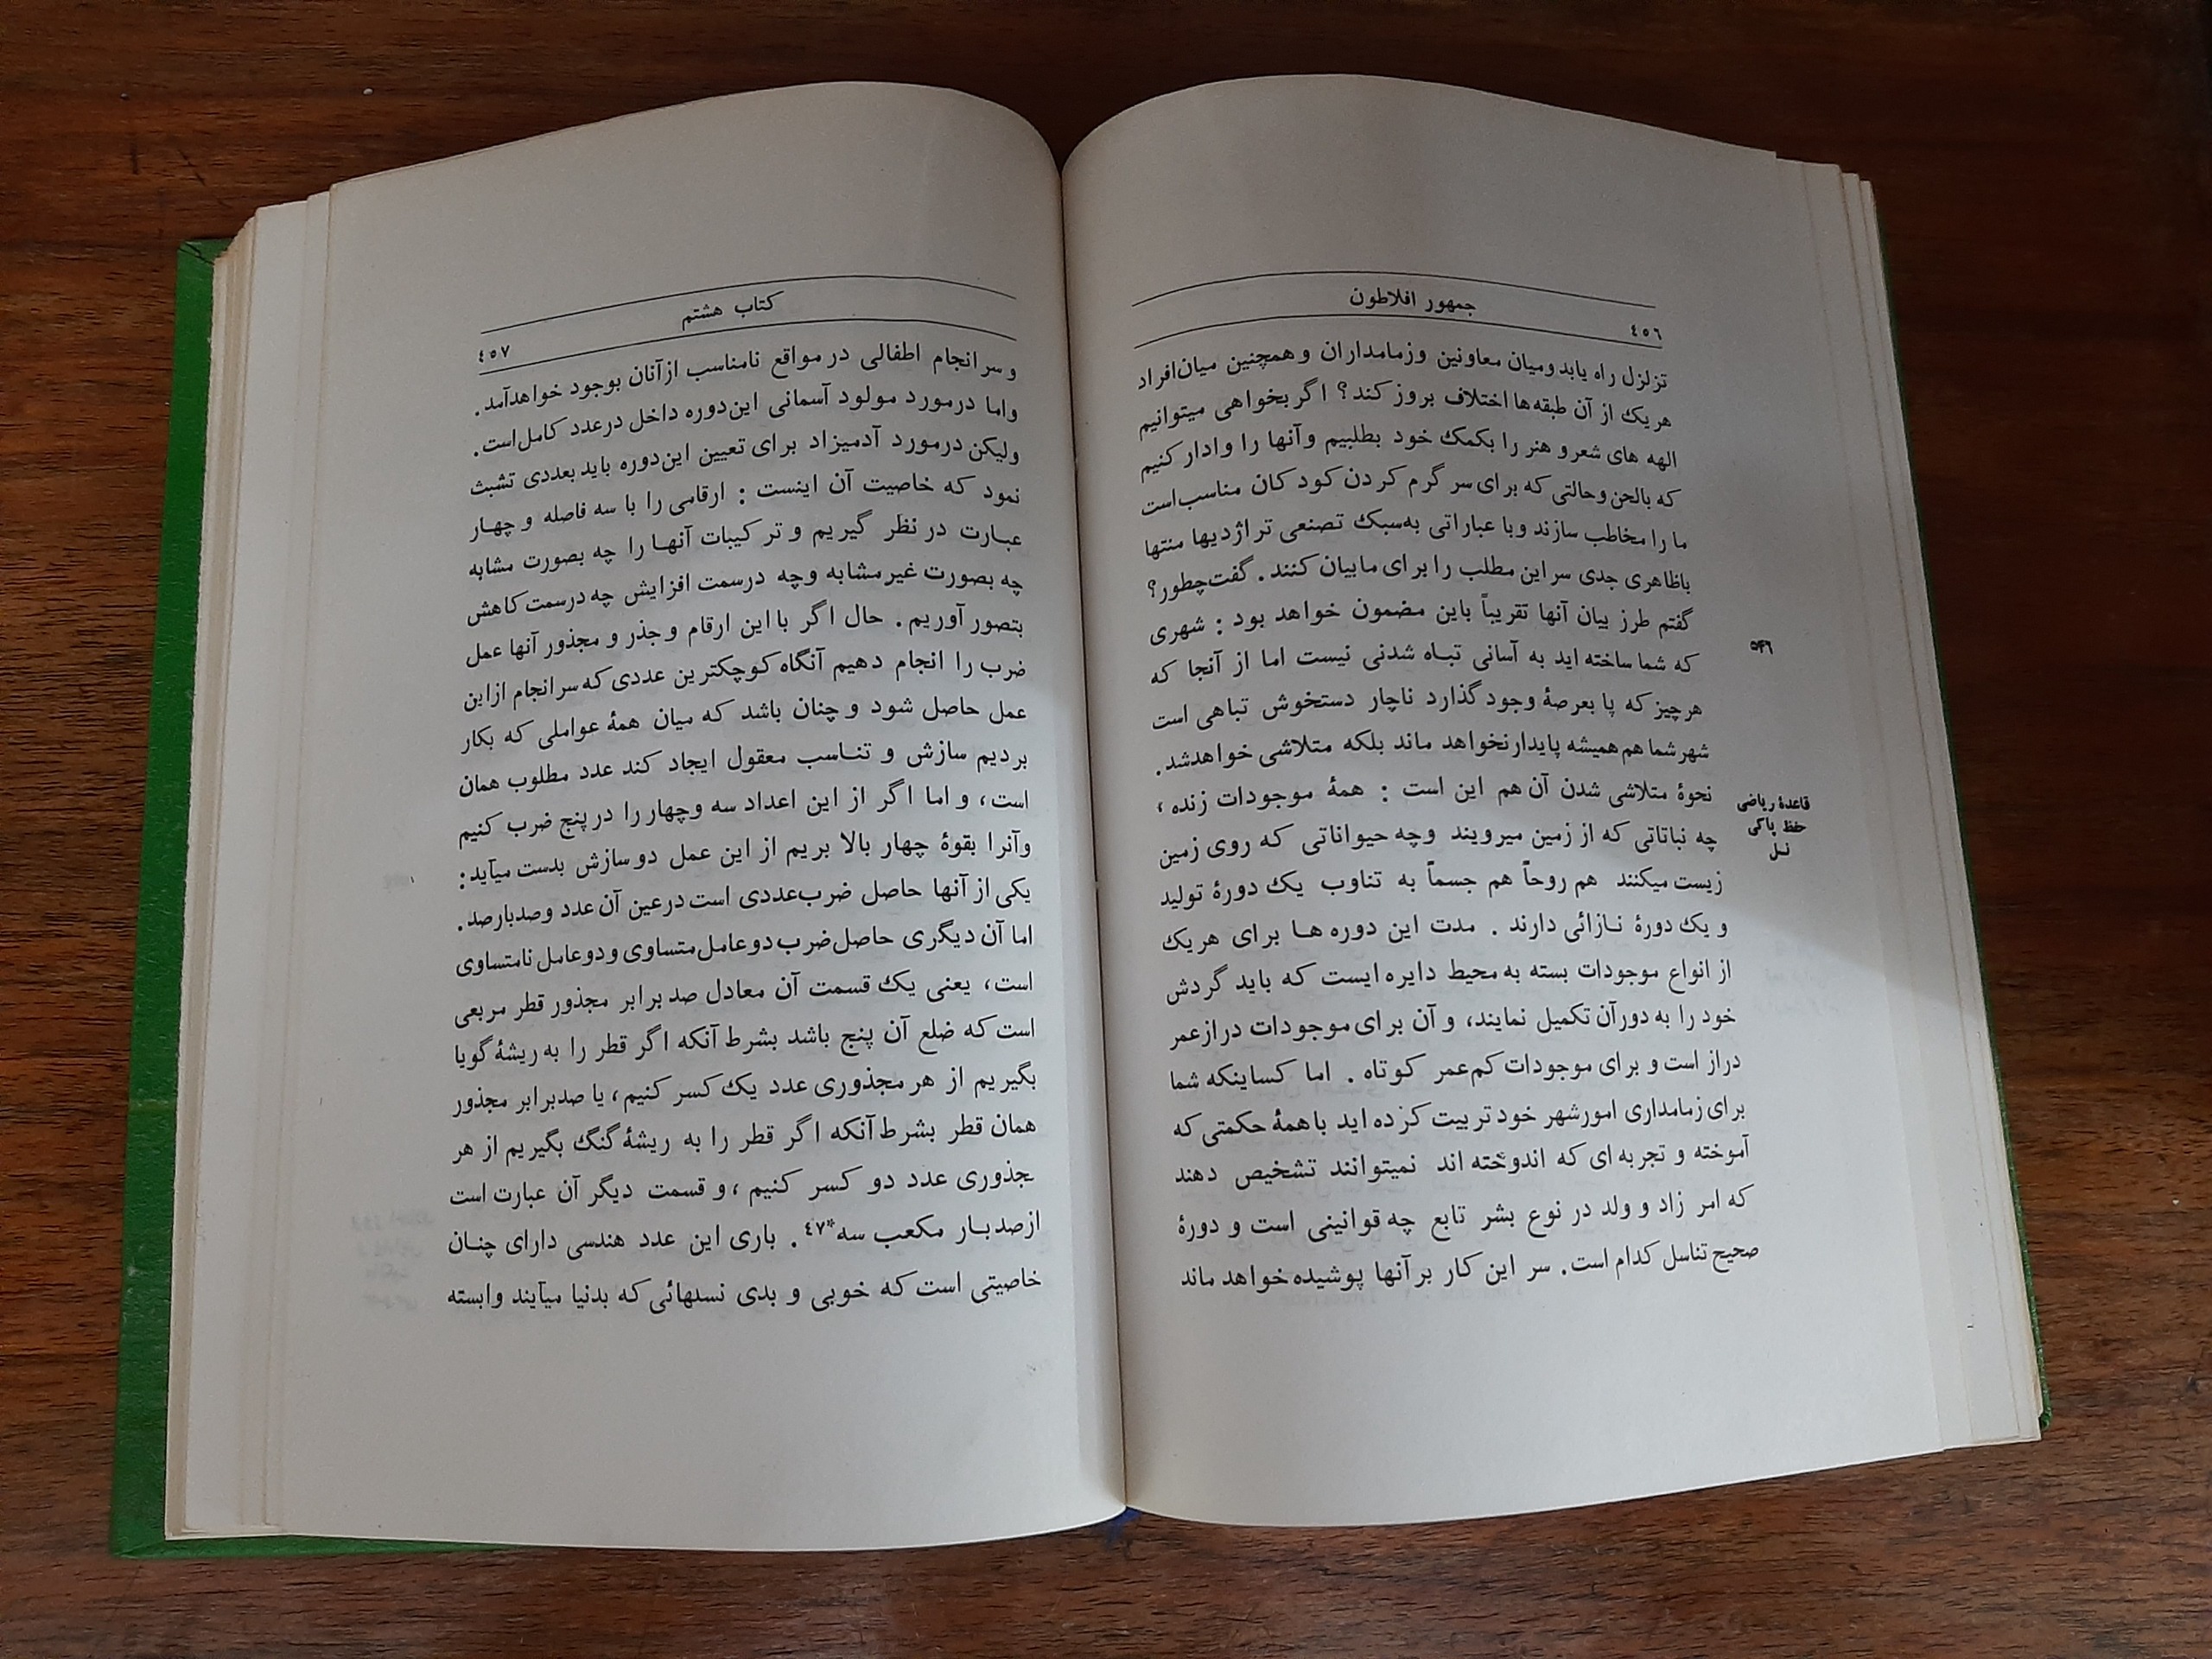 جمهور افلاطون
٤٥٦
تزلزل راه یابد و میان معاونین وزمامداران و همچنین میان افراد
هریک از آن طبقه‌ها اختلاف بروز کند؟ اگر بخواهی میتوانیم
الهه های شعرو هنر را بکمک خود بطلبیم و آنها را وادار کنیم
که بالحن وحالتی که برای سرگرم کردن کودکان مناسب است
ما را مخاطب سازند وبا عباراتی به‌سبک تصنعی تراژدیها منتها
باظاهری جدی سر این مطلب را برای ما بیان کنند. گفت چطور؟
گفتم طرز بیان آنها تقریباً باین مضمون خواهد بود: شهری
۵۴۶
که شما ساخته اید به آسانی تباه شدنی نیست اما از آنجا که
هرچیز که پا بعرصهٔ وجود گذارد ناچار دستخوش تباهی است
شهر شما هم همیشه پایدار نخواهد ماند بلکه متلاشی خواهد شد.
نحوهٔ متلاشی شدن آن هم این است: همهٔ موجودات زنده،
قاعدهٔ ریاضی
حفظ پاکی
نسل
چه نباتاتی که از زمین میرویند وچه حیواناتی که روی زمین
زیست میکنند هم روحاً هم جسماً به تناوب یک دورهٔ تولید
و یک دورهٔ نازائی دارند. مدت این دوره ها برای هریک
از انواع موجودات بسته به محیط دایره ایست که باید گردش
خود را به دور آن تکمیل نمایند، و آن برای موجودات درازعمر
دراز است و برای موجودات کم‌عمر کوتاه. اما کسانیکه شما
برای زمامداری امور شهر خود تربیت کرده اید باهمهٔ حکمتی که
آموخته و تجربه ای که اندوخته اند نمیتوانند تشخیص دهند
که امر زاد و ولد در نوع بشر تابع چه قوانینی است و دورهٔ
صحیح تناسل کدام است. سر این کار بر آنها پوشیده خواهد ماند
کتاب هشتم
٤٥٧
و سرانجام اطفالی در مواقع نامناسب از آنان بوجود خواهد آمد.
واما درمورد مولود آسمانی این دوره داخل درعدد کامل است.
ولیکن درمورد آدمیزاد برای تعیین این دوره باید بعددی تشبث
نمود که خاصیت آن اینست: ارقامی را با سه فاصله و چهار
عبارت در نظر گیریم و ترکیبات آنها را چه بصورت مشابه
چه بصورت غیر مشابه وچه درسمت افزایش چه درسمت کاهش
بتصور آوریم. حال اگر با این ارقام وجذر و مجذور آنها عمل
ضرب را انجام دهیم آنگاه کوچکترین عددی که سرانجام ازاین
عمل حاصل شود و چنان باشد که میان همهٔ عواملی که بکار
بردیم سازش و تناسب معقول ایجاد کند عدد مطلوب همان
است، و اما اگر از این اعداد سه وچهار را در پنج ضرب کنیم
وآنرا بقوهٔ چهار بالا بریم از این عمل دو سازش بدست میآید:
یکی از آنها حاصل ضرب عددی است درعین آن عدد وصدبارصد.
اما آن دیگری حاصل ضرب دوعامل متساوی و دوعامل نامتساوی
است، یعنی یک قسمت آن معادل صد برابر مجذور قطر مربعی
است که ضلع آن پنج باشد بشرط آنکه اگر قطر را به ریشهٔ گویا
بگیریم از هر مجذوری عدد یک کسر کنیم، یا صدبرابر مجذور
همان قطر بشرط آنکه اگر قطر را به ریشهٔ گنگ بگیریم از هر
جذوری عدد دو کسر کنیم، و قسمت دیگر آن عبارت است
از صدبار مکعب سه*٤٧. باری این عدد هندسی دارای چنان
خاصیتی است که خوبی و بدی نسلهائی که بدنیا میآیند وابسته